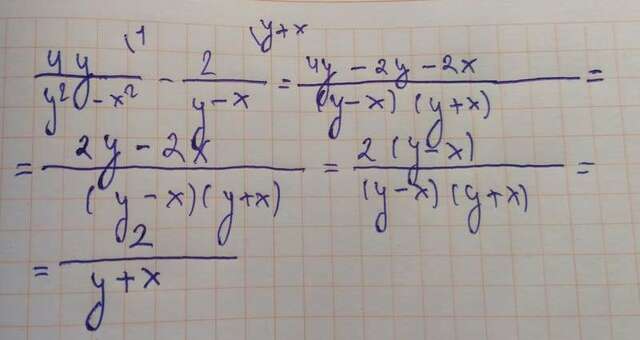 \frac{4y}{y^2-x^2}^{\backslash 1} - \frac{2}{y-x}^{\backslash y+x} = \frac{4y-2y-2x}{(y-x)(y+x)} =
= \frac{2y-2x}{(y-x)(y+x)} = \frac{2(y-x)}{(y-x)(y+x)} =
= \frac{2}{y+x}